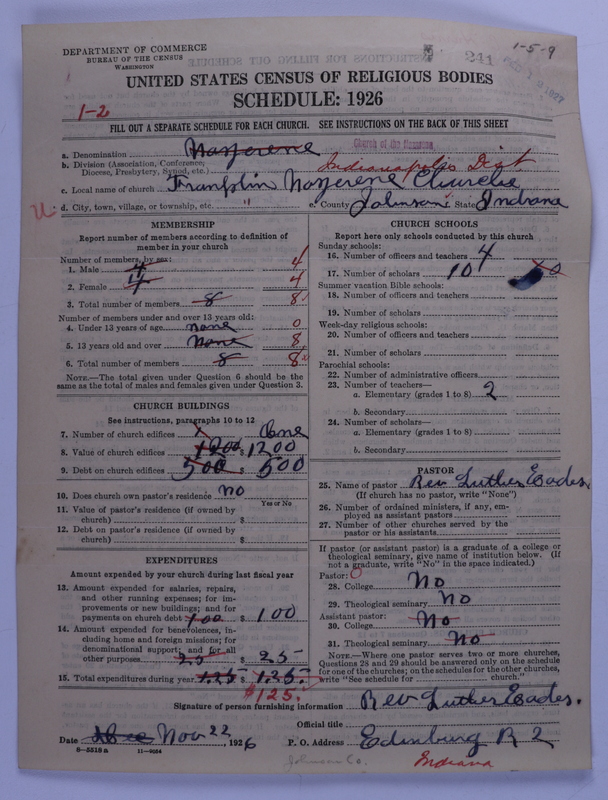 DEPARTMENT OF COMMERCE
BUREAU OF THE CENSUS
WASHINGTON
241
1-5-9
UNITED STATES CENSUS OF RELIGIOUS BODIES
SCHEDULE: 1926
1-2
FILL OUT A SEPARATE SCHEDULE FOR EACH CHURCH. SEE INSTRUCTIONS ON THE BACK OF THIS SHEET
a. Denomination Nazerene Church of the Nazarene
b. Division (Association, Conference, Diocese, Presbytery, Synod, etc.) Indianapolis Dist
c. Local name of church Franklin Nazerene Church
d. City, town, village, or township, etc. " e. County Johnson State Indiana
MEMBERSHIP
Report number of members according to definition of member in your church
Number of members, by sex:
1. Male 4 4
2. Female 4 4
3. Total number of members 8 8
Number of members under and over 13 years old:
4. Under 13 years of age none 0
5. 13 years old and over none 8
6. Total number of members 8 8
NOTE.—The total given under Question 6 should be the same as the total of males and females given under Question 3.
CHURCH BUILDINGS
See instructions, paragraphs 10 to 12
7. Number of church edifices 1 One
8. Value of church edifices 1200 $ 1200
9. Debt on church edifices 500 $ 500
10. Does church own pastor's residence no
Yes or No
11. Value of pastor's residence (if owned by church) $
12. Debt on pastor's residence (if owned by church) $
EXPENDITURES
Amount expended by your church during last fiscal year
13. Amount expended for salaries, repairs, and other running expenses; for improvements or new buildings; and for payments on church debt 100 $ 100
14. Amount expended for benevolences, including home and foreign missions; for denominational support; and for all other purposes 25 $ 25
15. Total expenditures during year 125 $ 125
$125.
CHURCH SCHOOLS
Report here only schools conducted by this church
Sunday schools:
16. Number of officers and teachers 4
17. Number of scholars 10
Summer vacation Bible schools:
18. Number of officers and teachers
19. Number of scholars
Week-day religious schools:
20. Number of officers and teachers
21. Number of scholars
Parochial schools:
22. Number of administrative officers
23. Number of teachers—
a. Elementary (grades 1 to 8) 2
b. Secondary
24. Number of scholars—
a. Elementary (grades 1 to 8)
b. Secondary
PASTOR
25. Name of pastor Rev Luther Eades
(If church has no pastor, write "None")
26. Number of ordained ministers, if any, employed as assistant pastors
27. Number of other churches served by the pastor or his assistants
If pastor (or assistant pastor) is a graduate of a college or theological seminary, give name of institution below. (If not a graduate, write "No" in the space indicated.)
Pastor: 0
28. College No
29. Theological seminary No
Assistant pastor:
30. College No
31. Theological seminary No
NOTE.—Where one pastor serves two or more churches, Questions 28 and 29 should be answered only on the schedule for one of the churches; on the schedules for the other churches, write "See schedule for church."
Signature of person furnishing information Rev Luther Eades.
Official title
Date Dec Nov 22, 1926 P. O. Address Edinburg R 2
8-5518a 11-9054
Johnson Co. Indiana